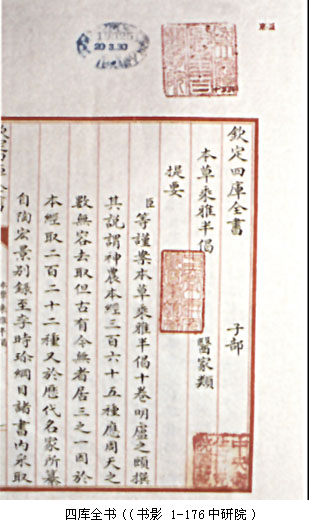 欽定四庫全書 子部
本草乘雅半偈 醫家類
提要
臣等謹案本草乘雅半偈十卷明盧之頤撰
其説謂神農本經三百六十五種應周天之
數無容去取但古有今無者居三之一因於
本經取二百二十二種又於歴代名家所纂
自陶宏景別錄至李時珍綱目諸書內采取
四库全书((书影 1-176中研院)